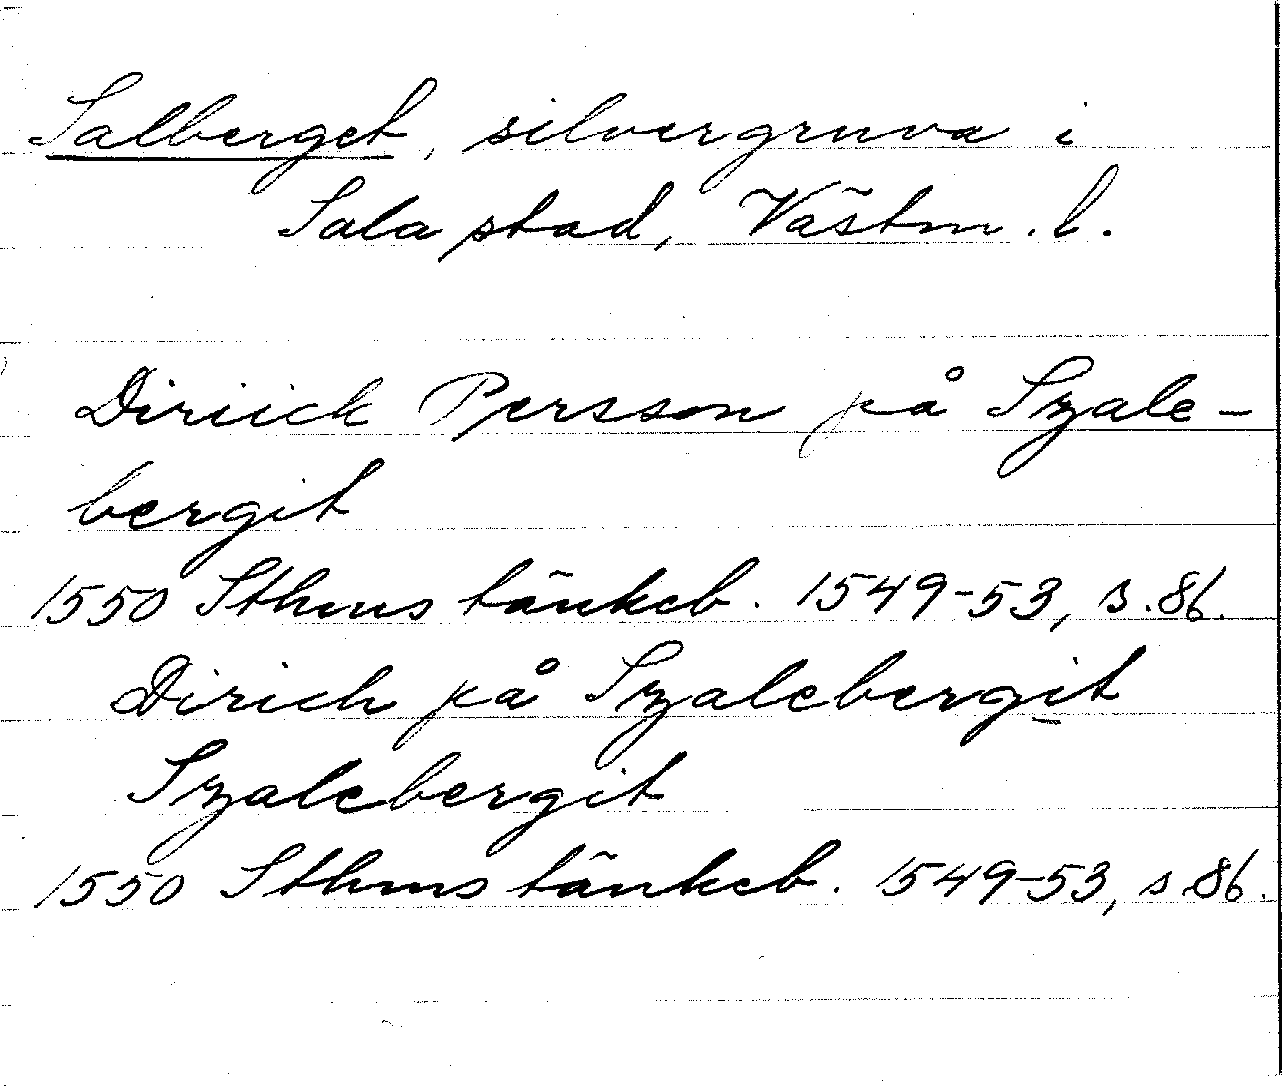 Salberget, silvergruva i
Sala stad, Västm. l.
Diriick Persson på Szale-
bergit
1550 Sthms tänkeb. 1549-53, s. 86.
Dirich på Szalebergit
Szalebergit
1550 Sthms tänkeb. 1549-53, s. 86.